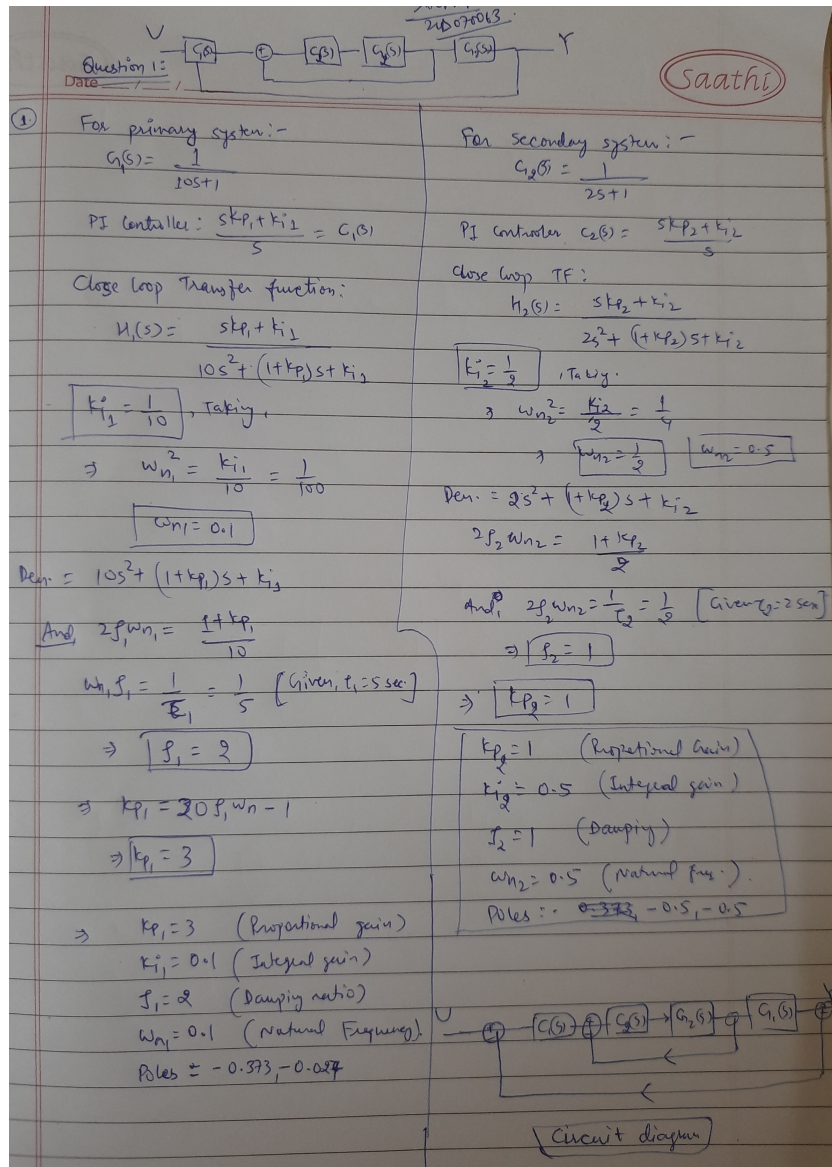 21D070063
U C₁(s) + C₂(s) G₂(s) G₁(s) Y
Question 1:
Date
Saathi
1.
For primary system:-
G₁(s) = 1/(10s+1)
PI Controller: (skp₁+ki₁)/s = C₁(s)
Close loop Transfer function:
H₁(s) = (skp₁+ki₁)/(10s²+(1+kp₁)s+ki₁)
ki₁ = 1/10, Taking,
⇒ wn₁² = ki₁/10 = 1/100
wn₁ = 0.1
Den. = 10s²+(1+kp₁)s+ki₁
And, 2ζ₁wn₁ = (1+kp₁)/10
wn₁ζ₁ = 1/τ₁ = 1/5 [Given, τ₁=5 sec.]
⇒ ζ₁ = 2
⇒ kp₁ = 20ζ₁wn - 1
⇒ kp₁ = 3
⇒ kp₁=3 (Proportional gain)
ki₁=0.1 (Integral gain)
ζ₁=2 (Damping ratio)
wn₁=0.1 (Natural Frequency).
Poles = -0.373, -0.027
For seconday system:-
G₂(s) = 1/(2s+1)
PI controller C₂(s) = (skp₂+ki₂)/s
Close loop TF:
H₂(s) = (skp₂+ki₂)/(2s²+(1+kp₂)s+ki₂)
ki₂ = 1/2, Taking.
⇒ wn₂² = ki₂/2 = 1/4
⇒ wn₂ = 1/2 wn₂=0.5
Den. = 2s²+(1+kp₂)s+ki₂
2ζ₂wn₂ = (1+kp₂)/2
And, 2ζ₂wn₂ = 1/τ₂ = 1/2 [Given τ₂=2 sec]
⇒ ζ₂ = 1
⇒ kp₂ = 1
kp₂=1 (Propetional Gain)
ki₂=0.5 (Integral gain)
ζ₂=1 (Damping)
wn₂=0.5 (Natural freq.).
Poles:- -0.5, -0.5
U + C₁(s) + C₂(s) G₂(s) G₁(s)
Circuit diagram